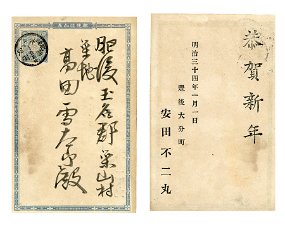 肥後玉名郡梁山村
梁地
高田雪太郎殿
恭賀新年
明治三十四年一月一日
豊後大分町
安田不二丸